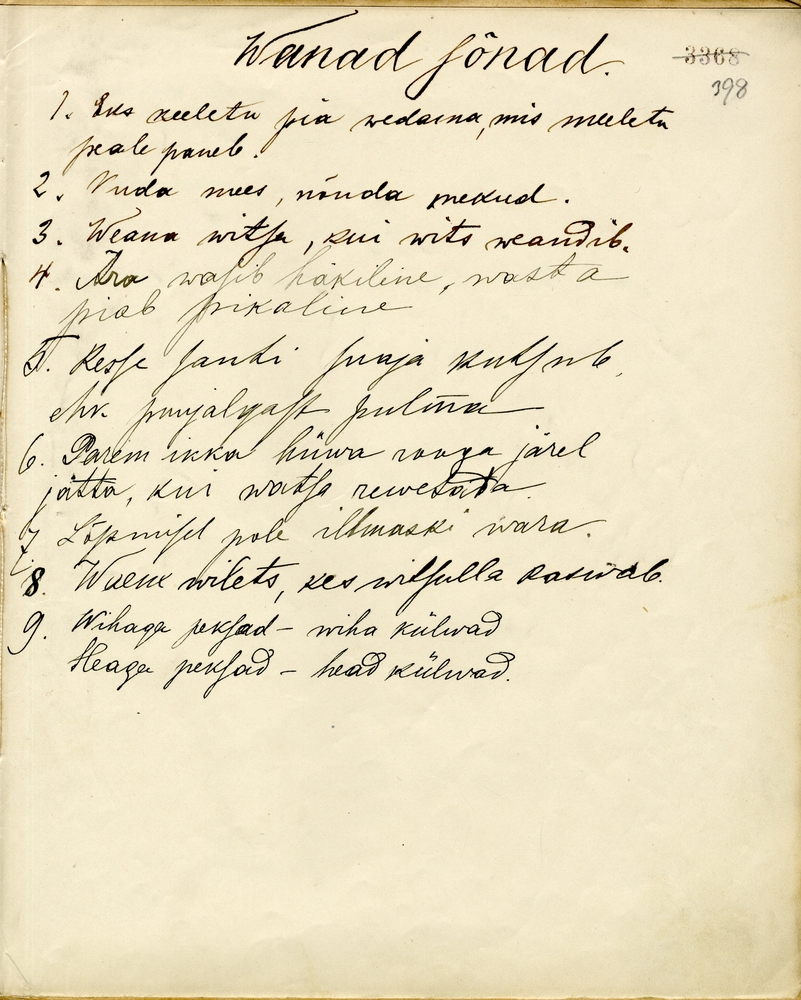 Wanad sõnad.
3368
398
1. Eks keeletu pia wedama, mis meeletu
peale paneb.
2. Nuda mees, nõuda mekud.
3. Weana witsa, kui wits weandib.
4. Ära wasib häkiline, wasta
piab prikaline
5. Kesse santi saaja kutsub,
ehk puujalgast pulma
6. Parem ikka hüwa rooga järel
jätta, kui watsa rewetada.
7. Lõpmisel pole illmaski wara.
8. Waene wilets, kes witsulla kaswab.
9. Wihaga peksad – wiha külwad
Heaga peksad – head külwad.